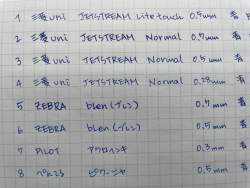 1 三菱uni JETSTREAM Lite touch 0.5mm 青
2 三菱uni JETSTREAM Normal 0.7mm 青
3 三菱uni JETSTREAM Normal 0.5mm 青
4 三菱uni JETSTREAM Normal 0.28mm 青
5 ZEBRA blen(ブレン) 0.7mm 青
6 ZEBRA blen(ブレン) 0.5mm 青
7 PILOT アクロインキ 0.3mm 青
8 ぺんてる ビクーニャ 0.5mm 青